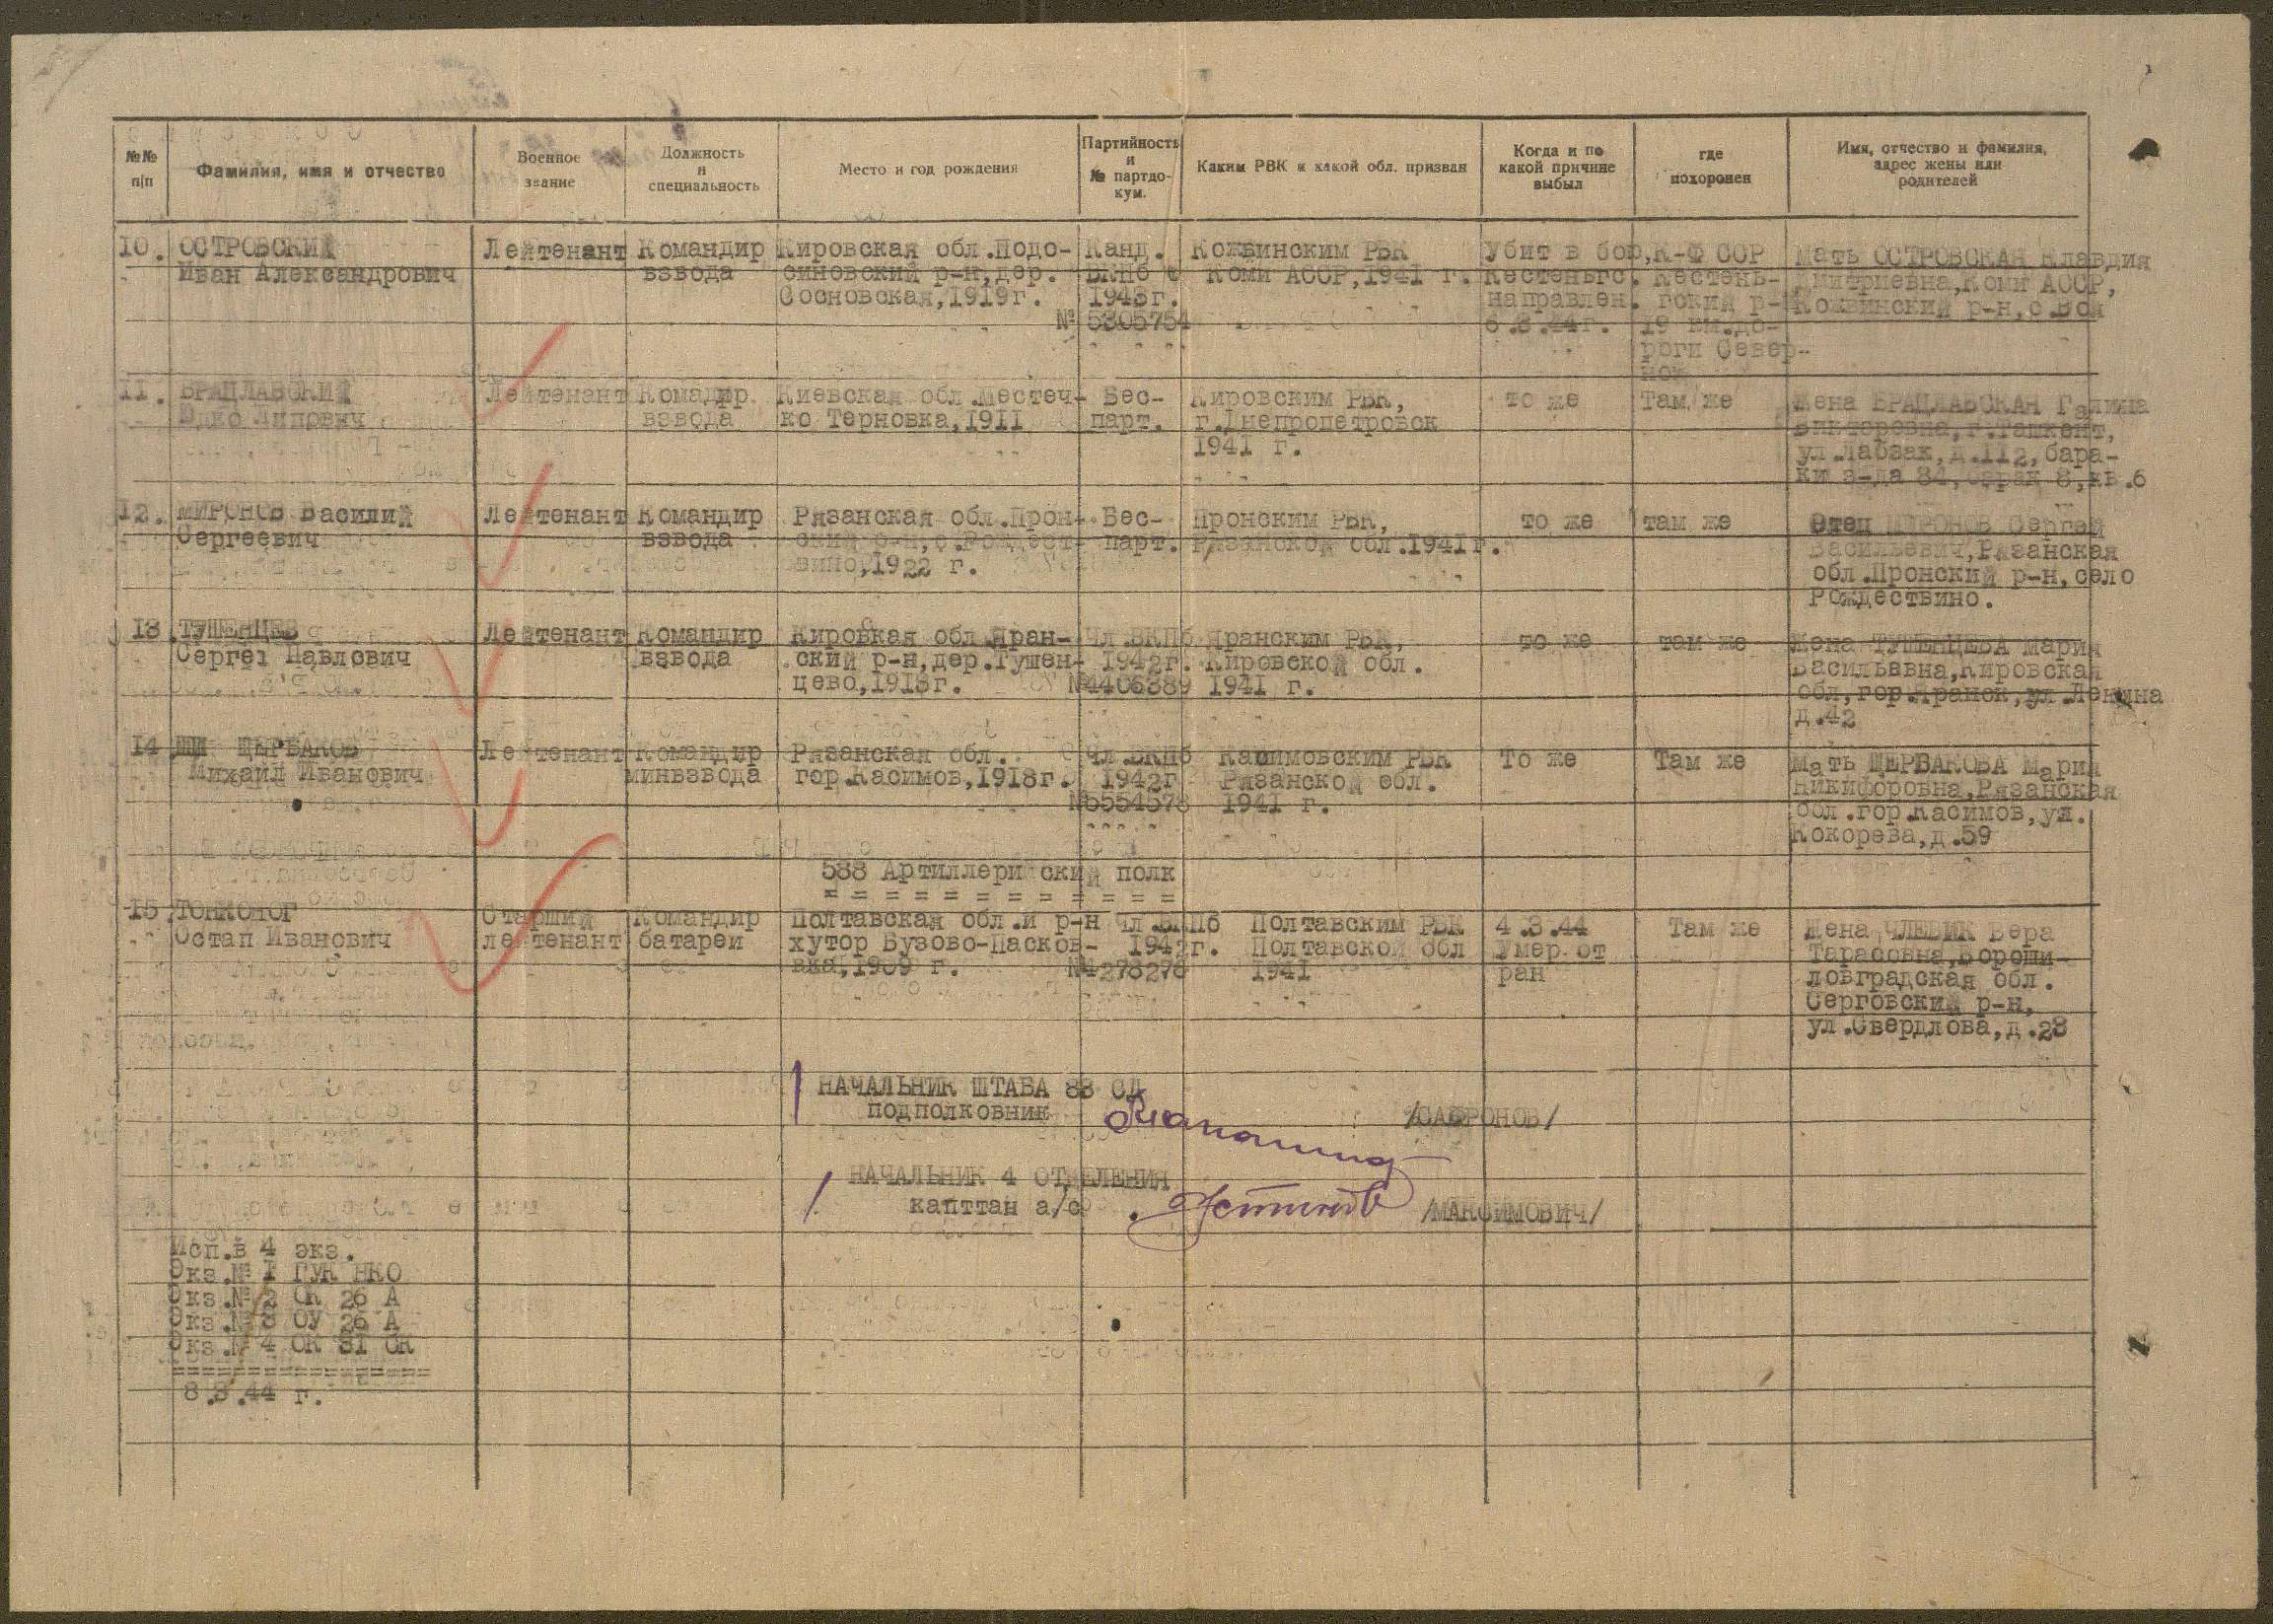 №№ п/п
Фамилия, имя и отчество
Военное звание
Должность и специальность
Место и год рождения
Партийность и № партдокум.
Каким РВК и какой обл. призван
Когда и по какой причине выбыл
где похоронен
Имя, отчество и фамилия, адрес жены или родителей
10. ОСТРОВСКИЙ
Иван Александрович
Лейтенант
Командир
взвода
Кировская обл.Подо-
синовский р-н, дер.
Сосновская,1919г.
Канд.
ВКПб с
1943г.
№ 5305754
Кожвинским РВК
Коми АССР,1941 г.
Убит в бою,
Кестеньгс.
направлен.
6.3.44г.
К-Ф ССР
Кестень-
гский р-
19 км.до-
роги Север-
ной
Мать ОСТРОВСКАЯ Клавдия
Дмитриевна,Коми АССР,
Кожвинский р-н,с.Воя
11. БРАЦЛАВСКИЙ
Юдко Липович
Лейтенант
Командир
взвода
Киевская обл.Местеч-
ко Терновка,1911
Бес-
парт.
Кировским РВК,
г.Днепропетровск
1941 г.
то же
Там же
Жена БРАЦЛАВСКАЯ Галина
Викторовна,г.Ташкент,
ул.Лабзак,д.112,бара-
ки з-да 84,барак 8,кв.6
12. МИРОНОВ Василий
Сергеевич
Лейтенант
Командир
взвода
Рязанская обл.Прон-
ский р-н,с.Рождест-
вино,1922 г.
Бес-
парт.
Пронским РВК,
Рязанской обл.1941г.
то же
там же
Отец МИРОНОВ Сергей
Васильевич,Рязанская
обл.Пронский р-н,село
Рождествино.
13 ТУШЕНЦЕВ
Сергей Павлович
Лейтенант
Командир
взвода
Кировская обл.Яран-
ский р-н,дер.Тушен-
цево,1918г.
Чл.ВКПб
1942г.
№4406389
Яранским РВК,
Кировской обл.
1941 г.
то же
там же
Жена ТУШЕНЦЕВА Мария
Васильевна,Кировская
обл,гор.Яранск,ул.Ленина
д.42
14 ЩЕРБАКОВ
Михаил Иванович
Лейтенант
Командир
минвзвода
Рязанская обл.
гор.Касимов,1918г.
Чл.ВКПб
1942г
№5554578
Касимовским РВК
Рязанской обл.
1941 г.
То же
Там же
Мать ЩЕРБАКОВА Мария
Никифоровна,Рязанская
обл.гор.Касимов,ул.
Кокорева,д.59
588 Артиллерийский полк
= = = = = = = = = = = =
15 ТОНКОНОГ
Остап Иванович
Старший
лейтенант
Командир
батареи
Полтавская обл.и р-н
хутор Бузово-Пасков-
вка,1909 г.
Чл.ВКПб
1942г.
№4278278
Полтавским РВК
Полтавской обл
1941
4.3.44
Умер от
ран
Там же
Жена ЧЛЕВИК Вера
Тарасовна,Вороши-
ловградская обл.
Серговский р-н,
ул.Свердлова,д.28
НАЧАЛЬНИК ШТАБА 88 СД
подполковник
/САФРОНОВ/
НАЧАЛЬНИК 4 ОТДЕЛЕНИЯ
капттан а/с
/МАКСИМОВИЧ/
Исп.в 4 экз.
Экз.№ 1 ГУК НКО
Экз.№ 2 ОК 26 А
Экз.№ 3 ОУ 26 А
Экз.№ 4 ОК 31 СК
=================
8.3.44 г.